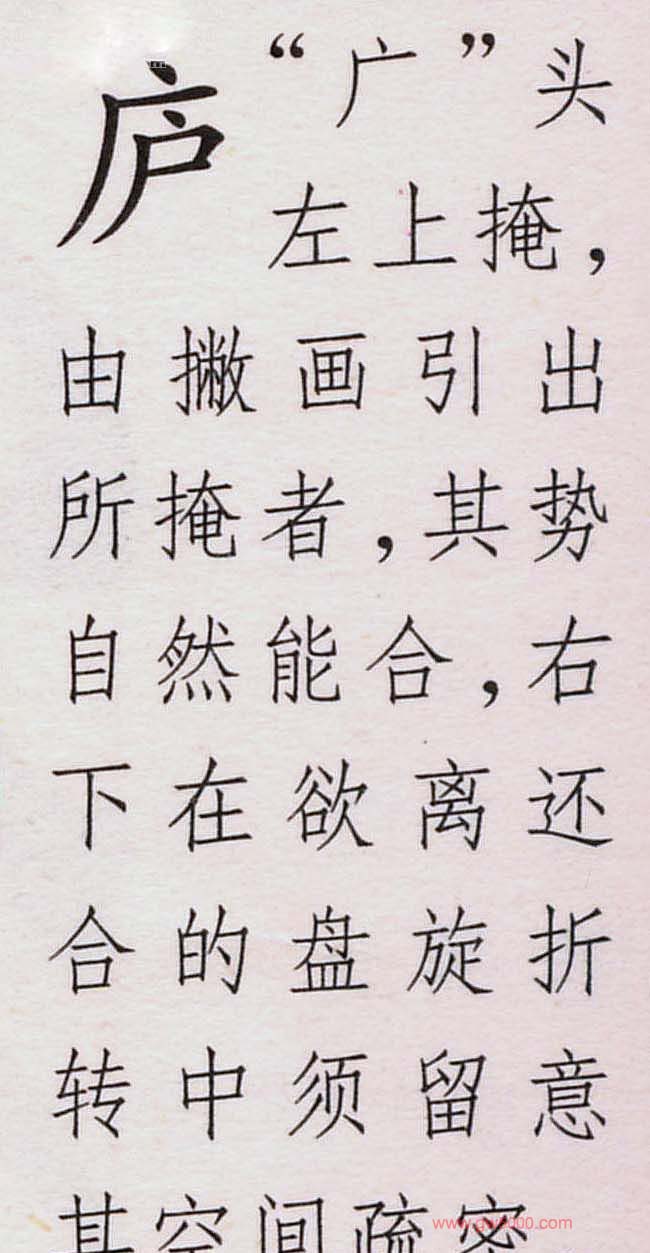 庐 “广”头
左上掩，
由撇画引出
所掩者，其势
自然能合，右
下在欲离还
合的盘旋折
转中须留意
其空间疏密